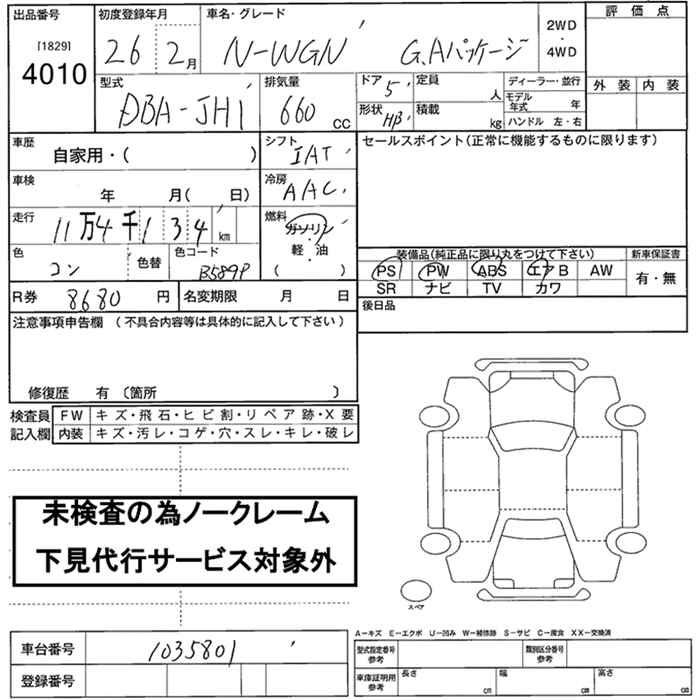 出品番号 初度登録年月 車名・グレード 評価点
[1829]
4010
26 2月 N-WGN G.Aパッケージ 2WD・4WD
外装 内装
型式 排気量 ドア 5 定員 人 ディーラー・並行
DBA-JH1 660 cc 形状 HB 積載 kg モデル年式 年
ハンドル 左・右
車歴 自家用・( ) シフト IAT セールスポイント(正常に機能するものに限ります)
車検 年 月( 日) 冷房 AAC
走行 11万4千134 km 燃料 ガソリン・軽・油 ( )
色 コン 色替 色コード B589P
装備品(純正品に限り丸をつけて下さい) 新車保証書
PS PW ABS エアB AW 有・無
SR ナビ TV カワ
R券 8680 円 名変期限 月 日 後日品
注意事項申告欄 (不具合内容等は具体的に記入して下さい)
修復歴 有 〔箇所 〕
検査員記入欄 FW キズ・飛石・ヒビ割・リペア跡・X要
内装 キズ・汚レ・コゲ・穴・スレ・キレ・破レ
未検査の為ノークレーム
下見代行サービス対象外
スペア
A-キズ E-エクボ U-凹み W-補修跡 S-サビ C-腐食 XX-交換済
車台番号 1035801 型式指定番号 参考 類別区分番号 参考
登録番号 車庫証明用 参考 長さ cm 幅 cm 高さ cm